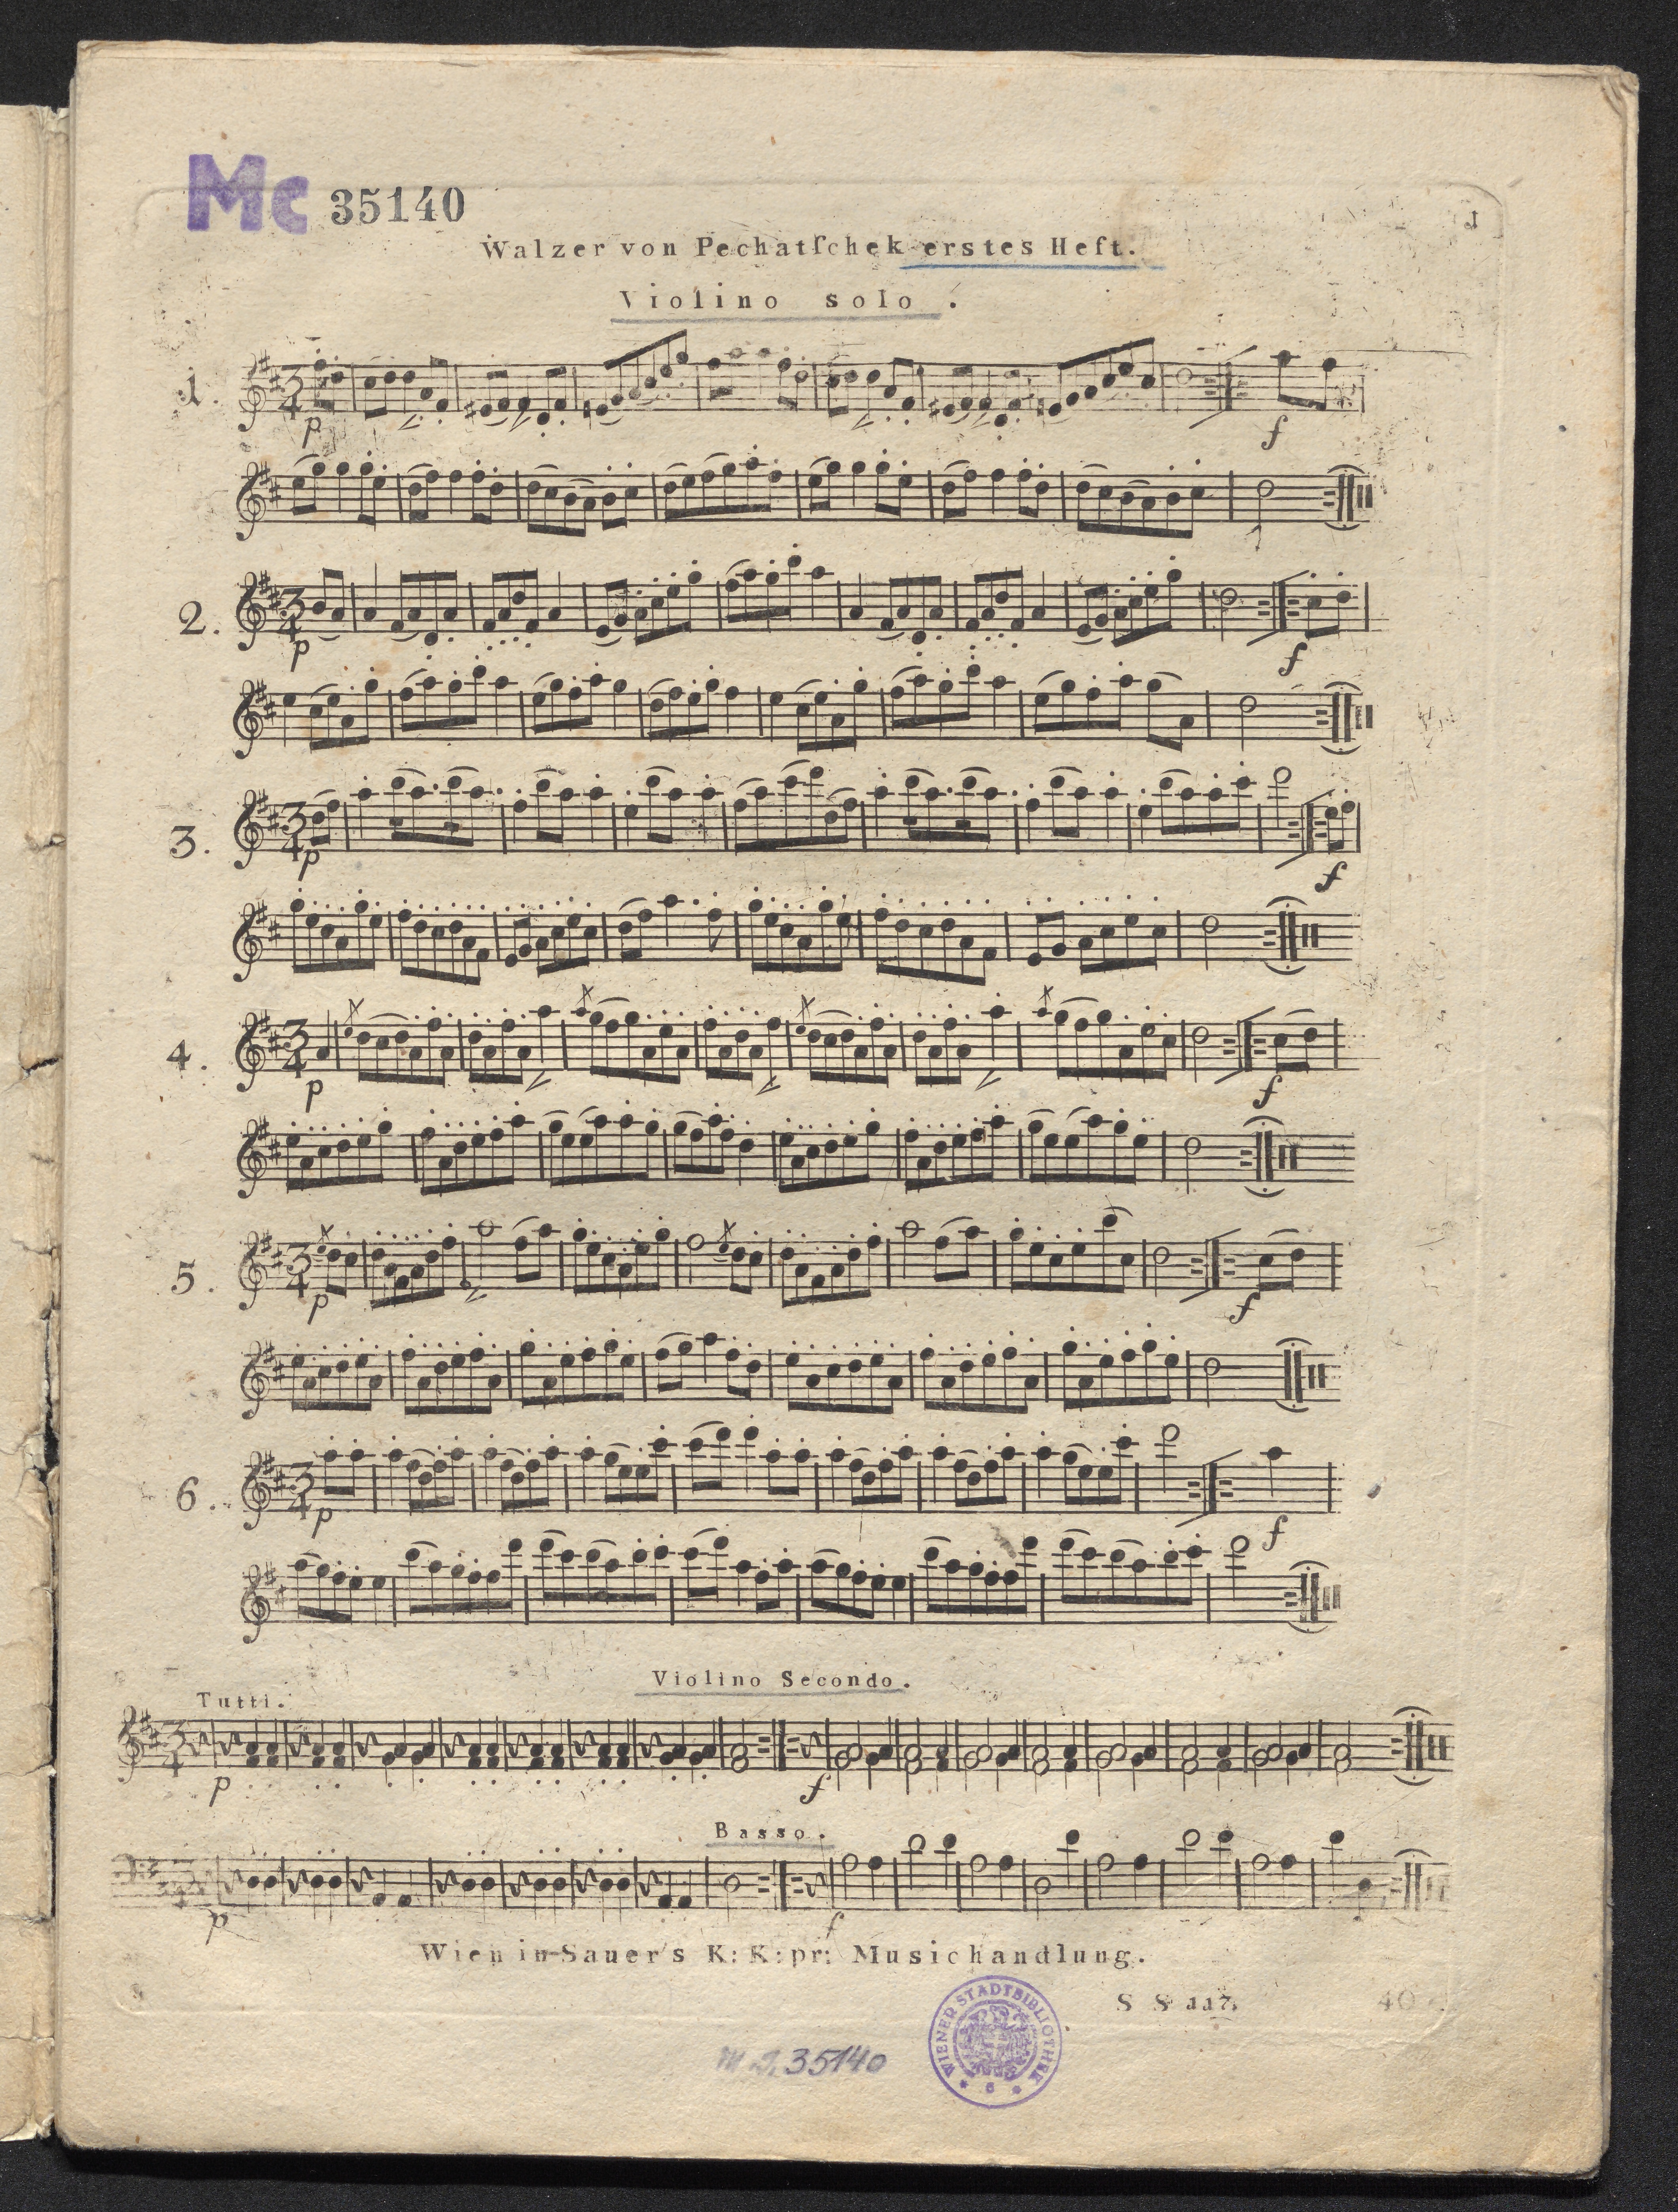 Mc 35140
1
Walzer von Pechatſchek erstes Heft.
Violino solo.
1.
p
f
2.
p
f
3.
p
f
4.
p
f
5.
p
f
6.
p
f
Violino Secondo.
Tutti.
p
f
Basso.
p
f
Wien in Sauer's K: K: pr: Musichandlung.
S S 117.
40
35140
WIENER STADTBIBLIOTHEK